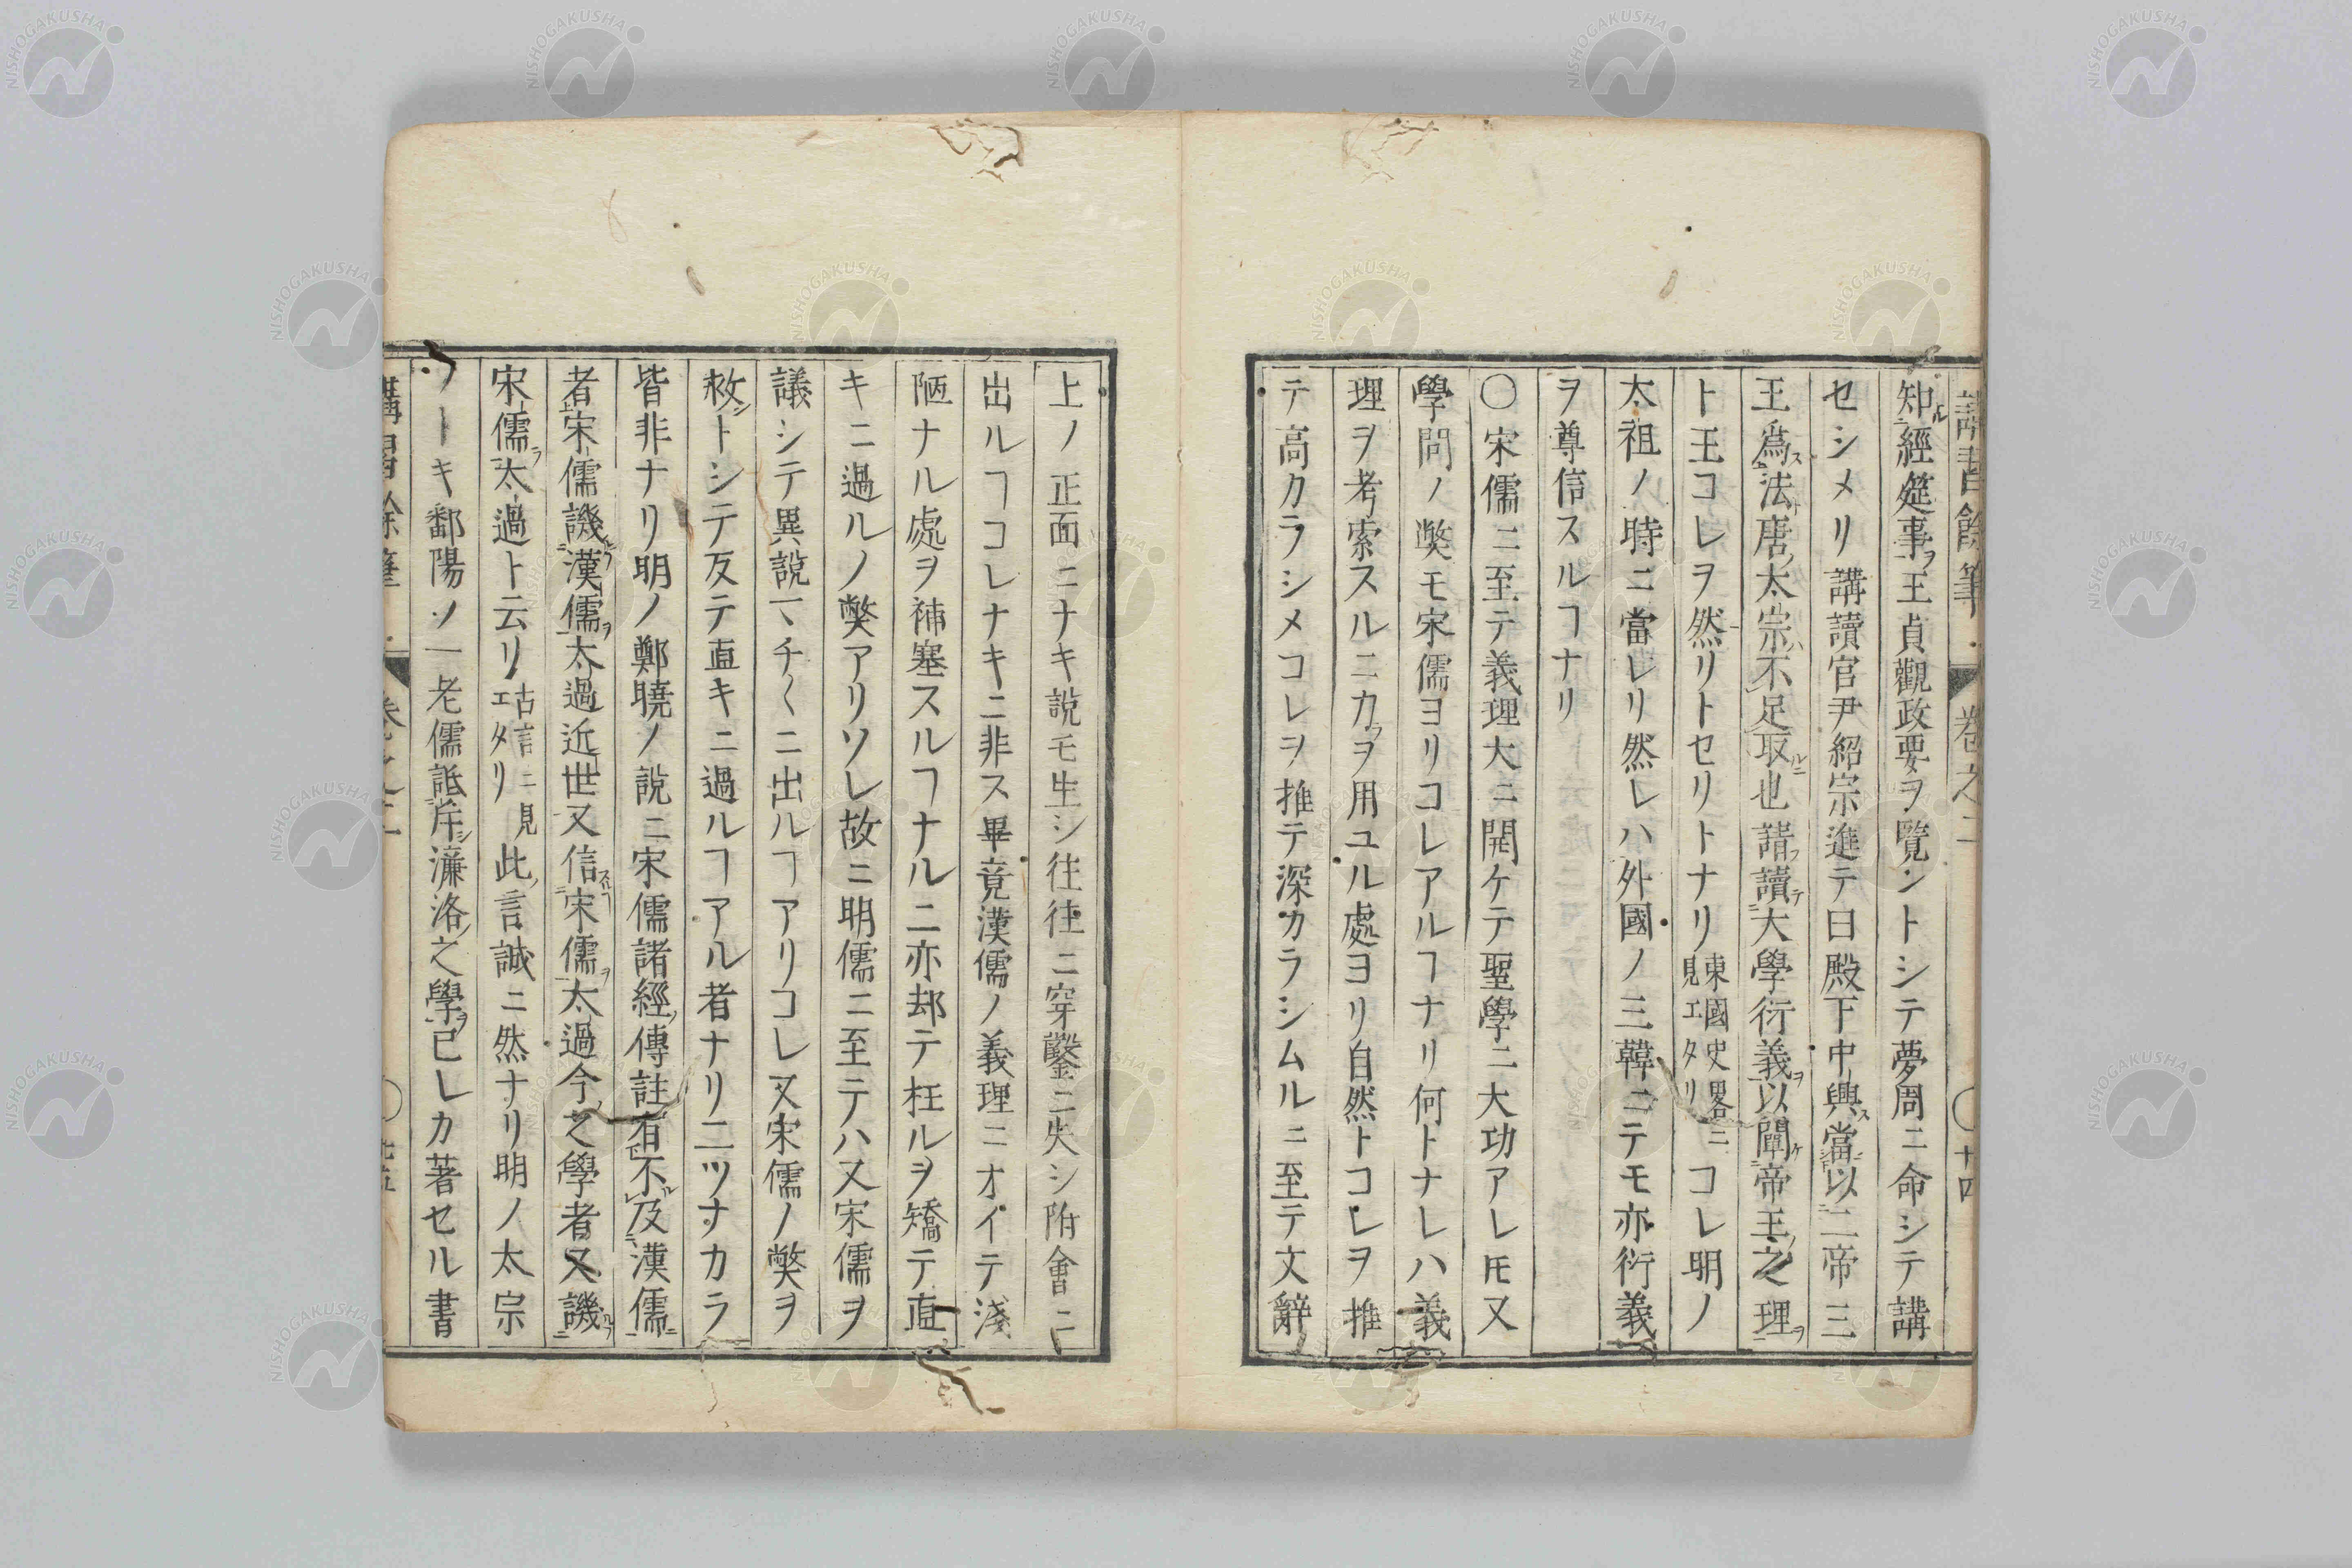 知ル經筵事ヲ王貞觀政要ヲ覽ントシテ夢周ニ命シテ講
セシメリ講讀官尹紹宗進テ曰殿下中興ス當以二帝三
王爲ス法唐ノ太宗ハ不足取ルニ也請フ讀テ大學衍義ヲ以闡ケ帝王ノ之理ヲ
ト王コレヲ然リトセリトナリ東國史畧ニ見エタリコレ明ノ
太祖ノ時ニ當レリ然レハ外國ノ三韓ニテモ亦衍義
ヲ尊信スルヿナリ
〇宋儒ニ至テ義理大ニ開ケテ聖學ニ大功アレ𪜈又
學問ノ弊モ宋儒ヨリコレアルヿナリ何トナレハ義
理ヲ考索スルニ力ラヲ用ユル處ヨリ自然トコレヲ推
テ高カラシメコレヲ推テ深カラシムルニ至テ文辭
上ノ正面ニナキ說モ生シ往往ニ穿鑿ニ失シ附會ニ
出ルヿコレナキニ非ス畢竟漢儒ノ義理ニオイテ淺
陋ナル處ヲ補塞スルヿナルニ亦却テ枉ルヲ矯テ直
キニ過ルノ弊アリソレ故ニ明儒ニ至テハ又宋儒ヲ
議シテ異說マチ〱ニ出ルヿアリコレ又宋儒ノ弊ヲ
救シトシテ反テ直キニ過ルヿアル者ナリ二ツナカラ
皆非ナリ明ノ鄭曉ノ說ニ宋儒諸經ノ傳註有不ル及漢儒ニ
者宋儒譏ルヿ漢儒ヲ太過近世又信スルヿ宋儒ヲ太過今ノ之學者又譏ルヿ
宋儒ヲ太過ト云リ古言ニ見エタリ此ノ言誠ニ然ナリ明ノ太宗
ノトキ鄱陽ノ一老儒詆斥シ濂洛ノ之學ヲ己レカ著セル書
卷之二
十四
NISHOGAKUSHA